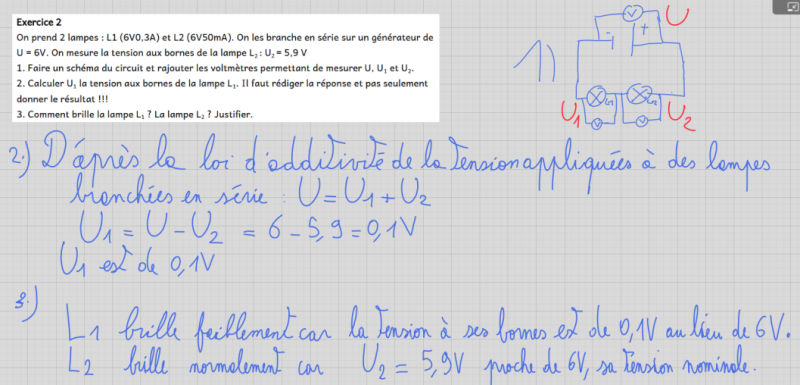 Exercice 2
On prend 2 lampes : L1 (6V0,3A) et L2 (6V50mA). On les branche en série sur un générateur de
U = 6V. On mesure la tension aux bornes de la lampe L₂ : U₂ = 5,9 V
1. Faire un schéma du circuit et rajouter les voltmètres permettant de mesurer U, U₁ et U₂.
2. Calculer U₁ la tension aux bornes de la lampe L₁. Il faut rédiger la réponse et pas seulement
donner le résultat !!!
3. Comment brille la lampe L₁ ? La lampe L₂ ? Justifier.
1)
V U
- +
L1 L2
U1 V V U2
2.) D'après la loi d'additivité de la tension appliquées à des lampes
branchées en série : U = U1 + U2
U1 = U - U2 = 6 - 5,9 = 0,1V
U1 est de 0,1V
3.)
L1 brille faiblement car la tension à ses bornes est de 0,1V au lieu de 6V.
L2 brille normalement car U2 = 5,9V proche de 6V, sa tension nominale.